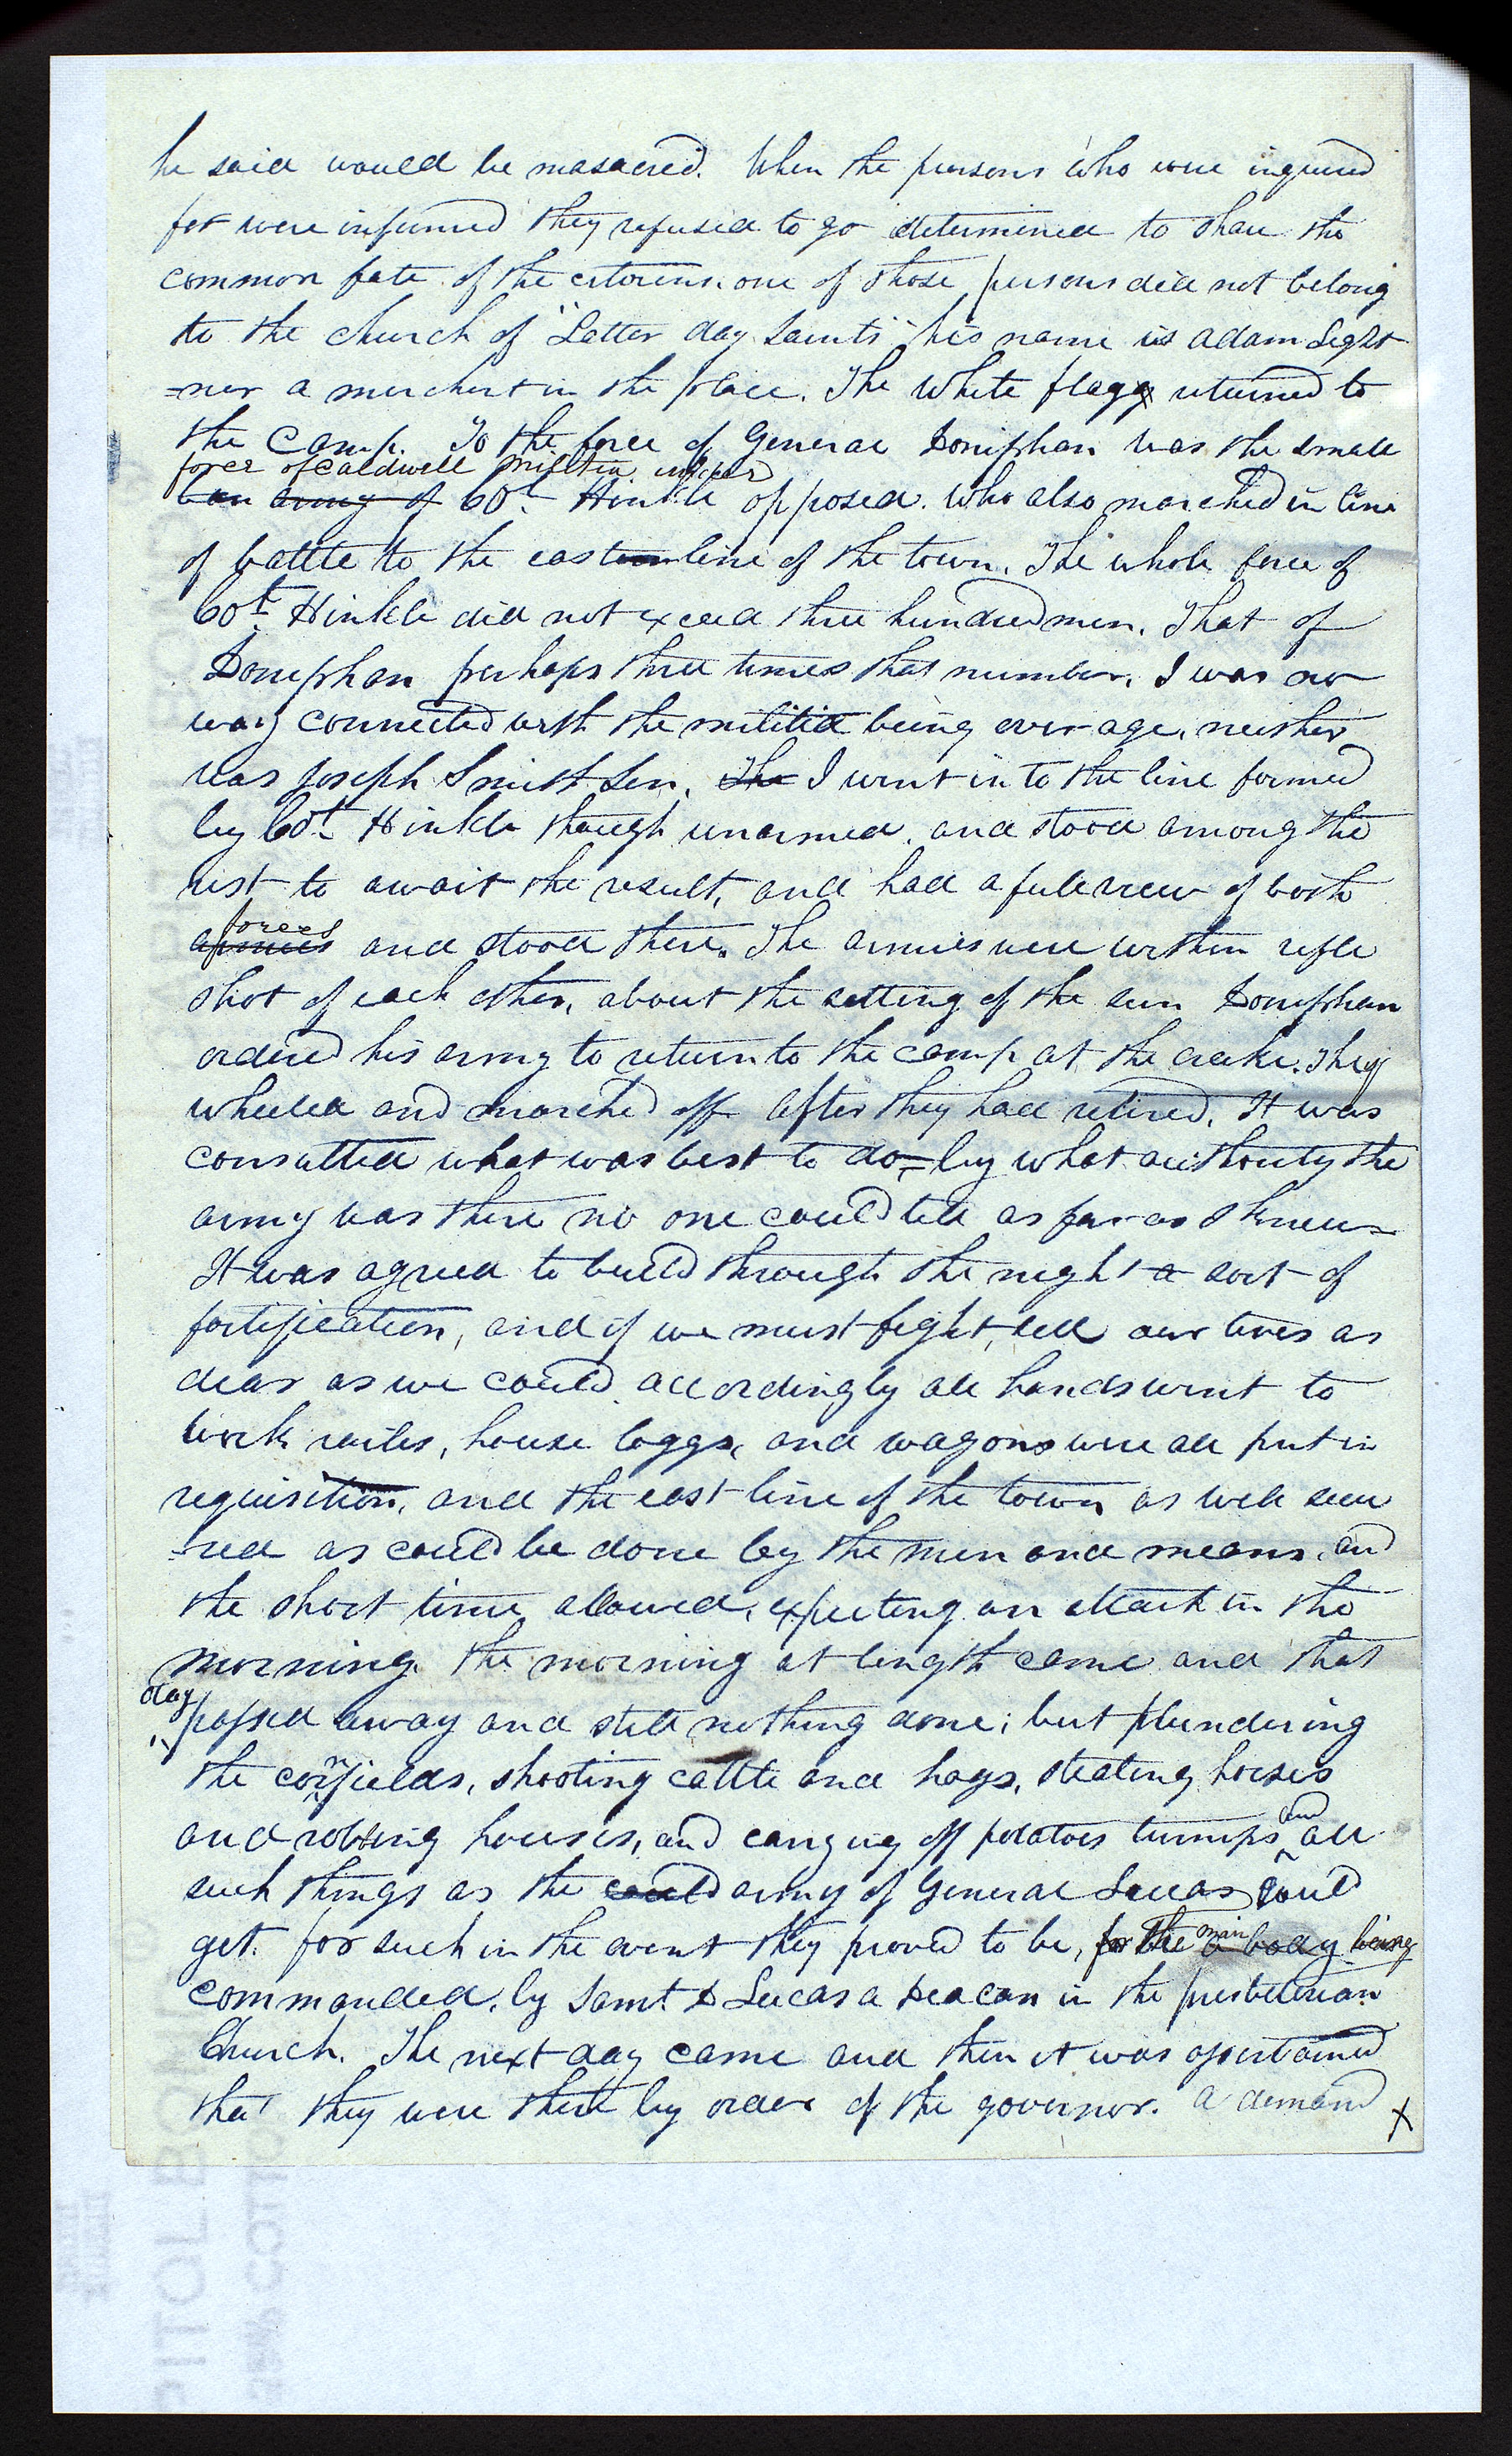 he said would be masacred. When the persons who were inquired
for were informed they refused to go determined to share the
common fate of the citizens. one of those persons did not belong
to the church of "Latter day Saints" his name is adam Light
=ner a merchant in the place. The White flagg returned to
the Camp. To the force of General Doniphan was the small
force of Caldwell militia under
army of Col. Hinkle opposed. Who also marched in line
of battle to the eastern line of the town. The whole force of
Col. Hinkle did not exceed three hundred men. That of
Doniphan perhaps three times that number. I was no
way connected with the militia being over age, neither
was Joseph Smith Sen. The I went in to the line formed
by Col. Hinkle though unarmed, and stood among the
rest to await the result, and had a full view of both
forces
armies and stood there. The armies were within rifle
shot of each other, about the setting of the sun Doniphan
ordered his army to return to the camp at the creeke. They
wheeled and marched off after they had retired, It was
consulted what was best to do= by what authority the
army was there no one could tell as far as I knew=
It was agreed to build through the night a sort of
fortification, and if we must fight, sell our lives as
dear as we could accordingly all hands went to
work railes, house loggs, and wagons were all put in
requisition, and the east line of the town as well secu
=red as could be done by the men and means, and
the short time allowed, expecting an attack in the
morning. the morning at length came and that
day
passed away and still nothing done; but plundering
the cornfields, shooting cattle and hogs, stealing horses
and robbing houses, and carrying off potatoes turnips and all
such things as the could army of General Lucas could
get. for such in the event they proved to be, for the main body being
commanded, by Saml. D Lucas a Deacon in the presbeterian
Church. The next day came and then it was assertained
that they were there by order of the governor. A demand X